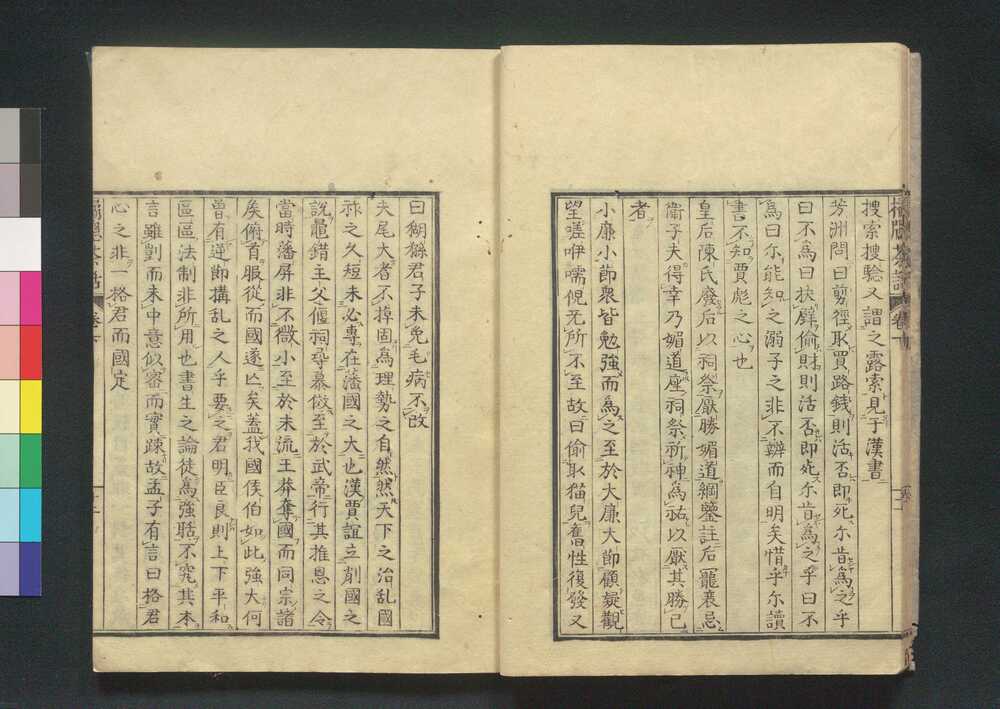 搜索搜驗又謂之露索見于漢書
芳洲問曰剪徑取買路錢則活否即死尓肯為之乎
曰不為曰抉壁偷財則活否即死尓肯為之乎曰不
為曰尓能知之溺子之非不辨而自明矣惜乎尓讀
書不知賈彪之心也
皇后陳氏廢后以祠祭厭勝媚道綱鑒註后寵衰忌
衛子夫得幸乃媚道座祠祭祈神為祐以厭其勝己
者
小廉小節衆皆勉強而為之至於大廉大節顧凝觀
望嗟咿嚅倪无所不至故曰偷取猫兒舊性復發又
曰糊猻君子未免毛病不改
夫尾大者不掉固為理勢之自然然天下之治乱國
祚之久短未必專在藩國之大也漢賈誼立削國之
說鼂錯主父偃祠尋慕傚至於武帝行其推恩之令
當時藩屏非不微小至於末流王莽奪國而同宗諸
矣俯首服從而國遂亾矣蓋我國侯伯如此強大何
曽有逆節搆乱之人乎要之君明臣良則上下平和
區區法制非所用也書生之論徒為強聒不究其本
言雖剴而未中意似審而實疎故孟子有言曰格君
心之非一格君而國定